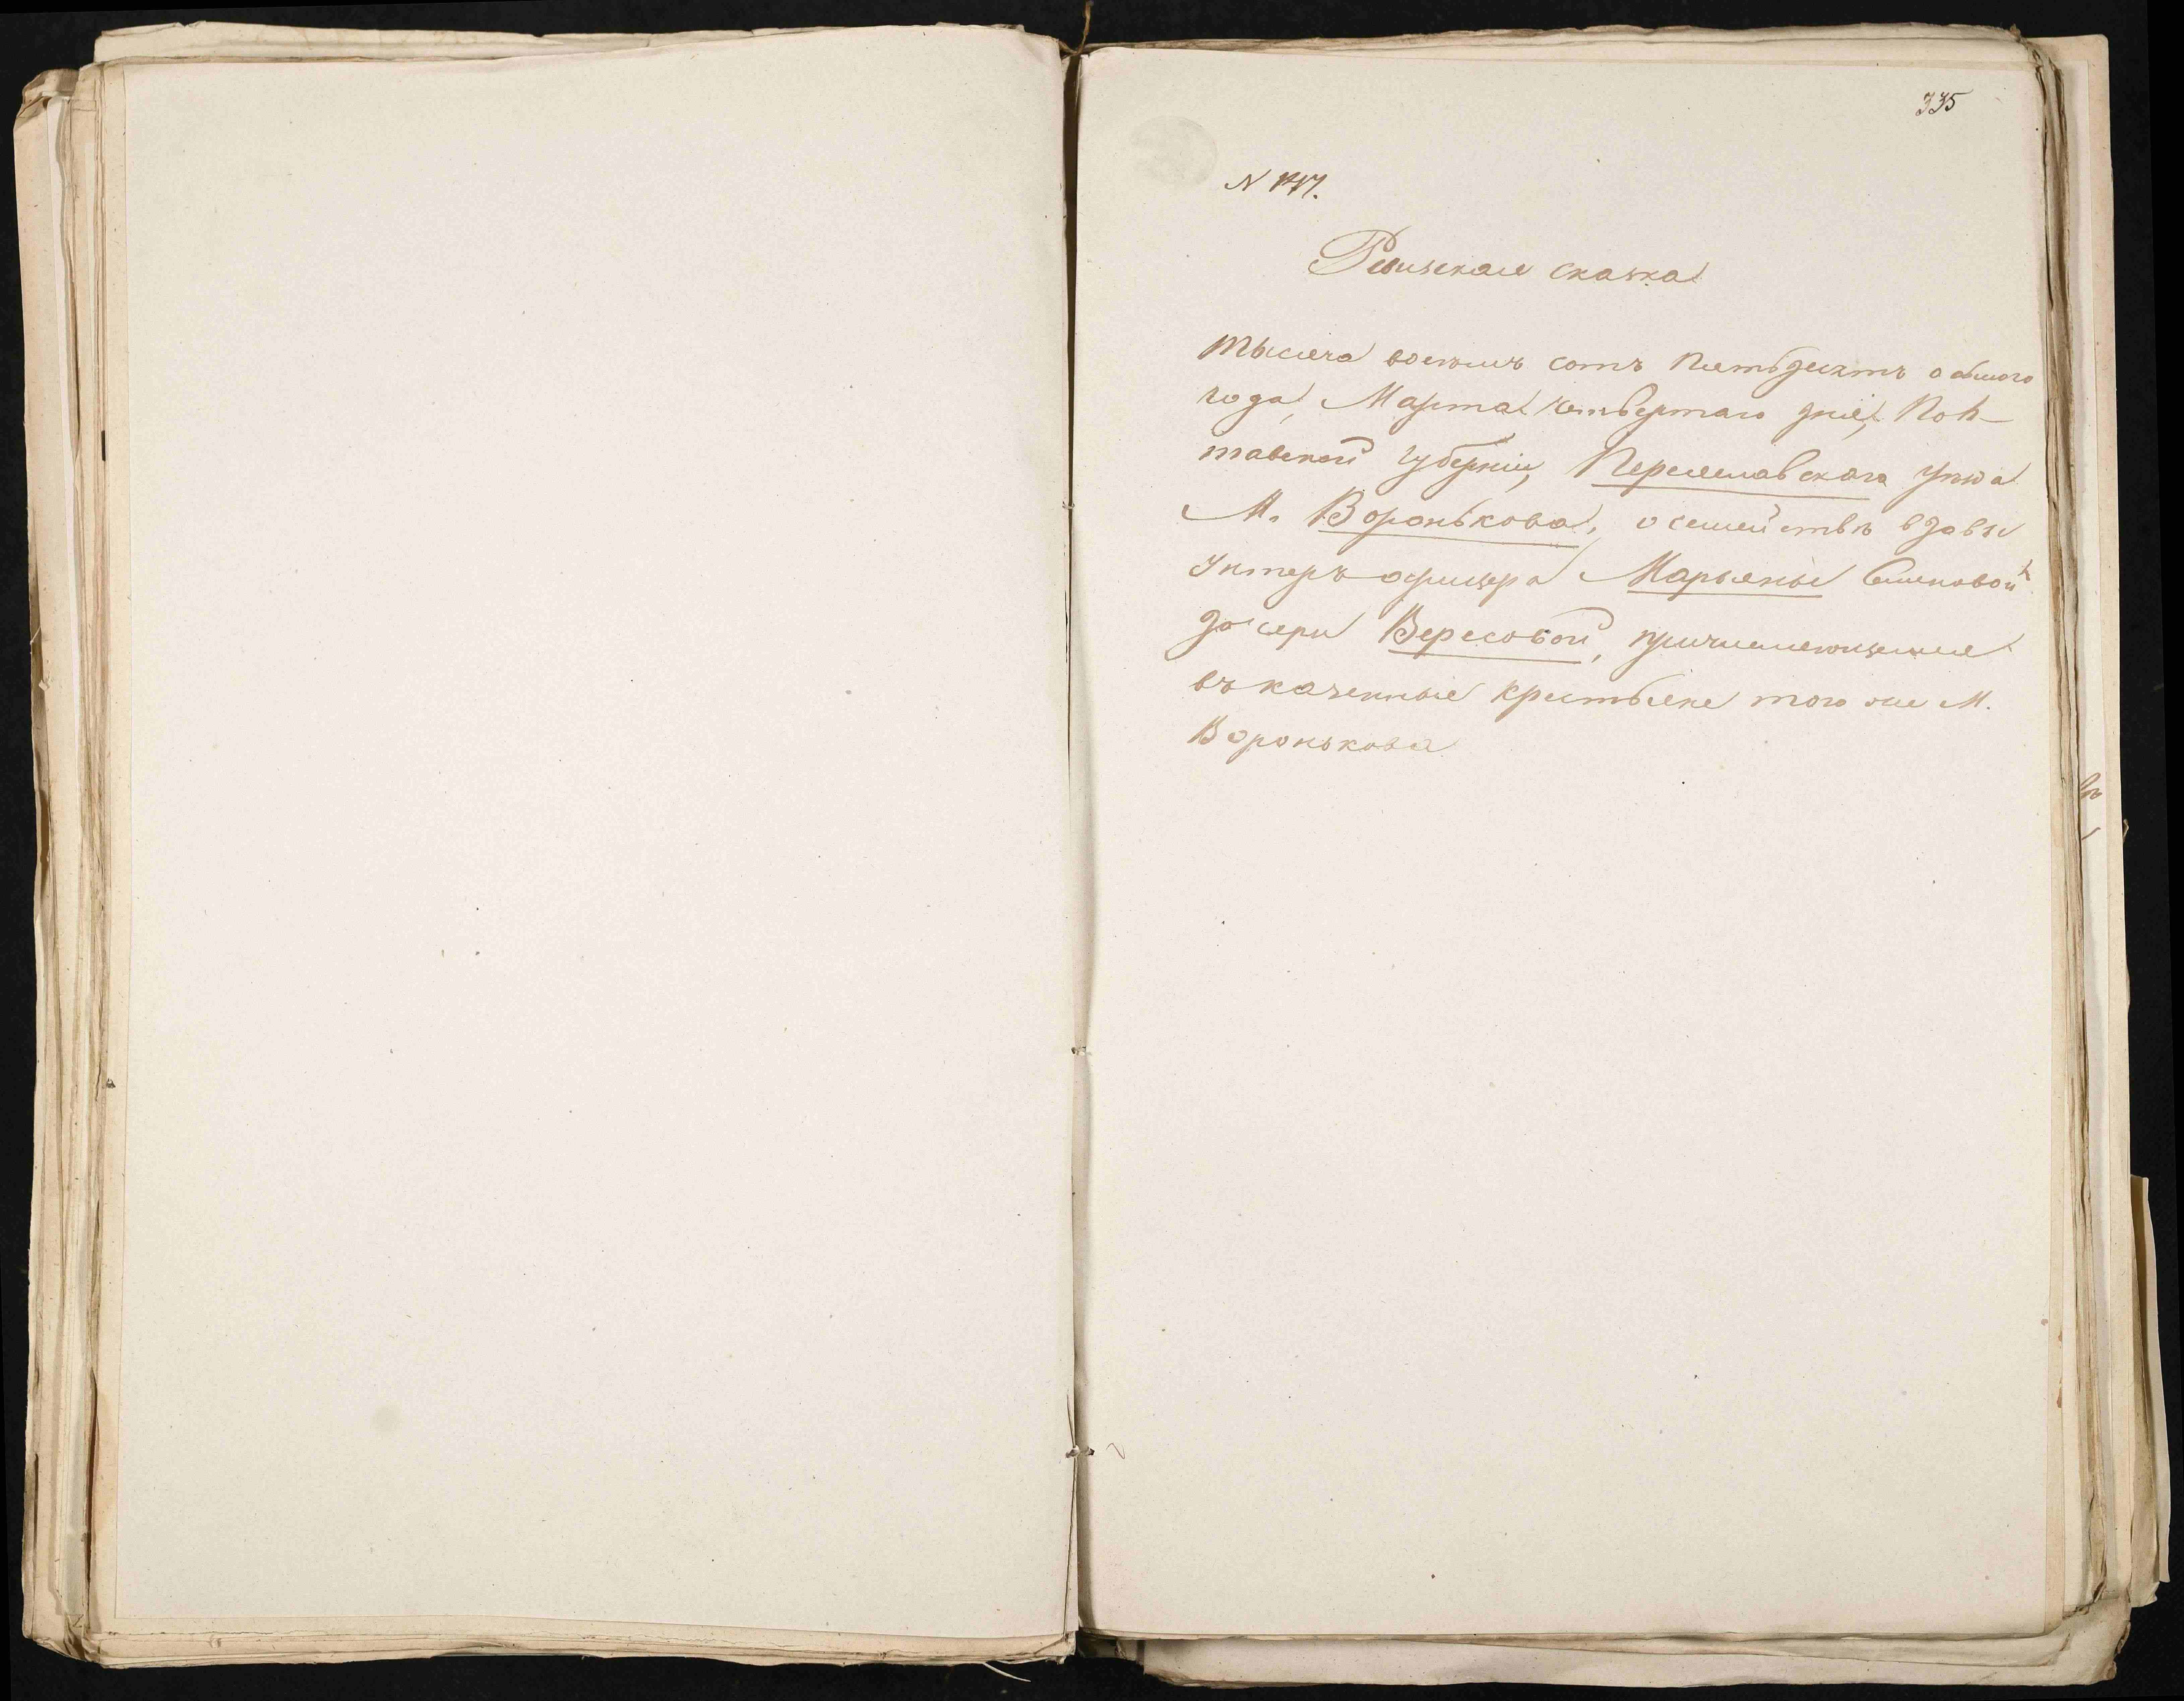 335
N 147.
Ревизская сказка
тысяча восемь сотъ пятьдесятъ осьмого
года, Марта четвертаго дня, Пол-
тавской губерніи, Переяславскаго уѣзда
М. Воронькова, о семействѣ вдовы
унтеръ-офицера Марьяны Семеновой
дочери Вересовой, причисляющемся
въ казенные крестьяне того же М.
Воронькова